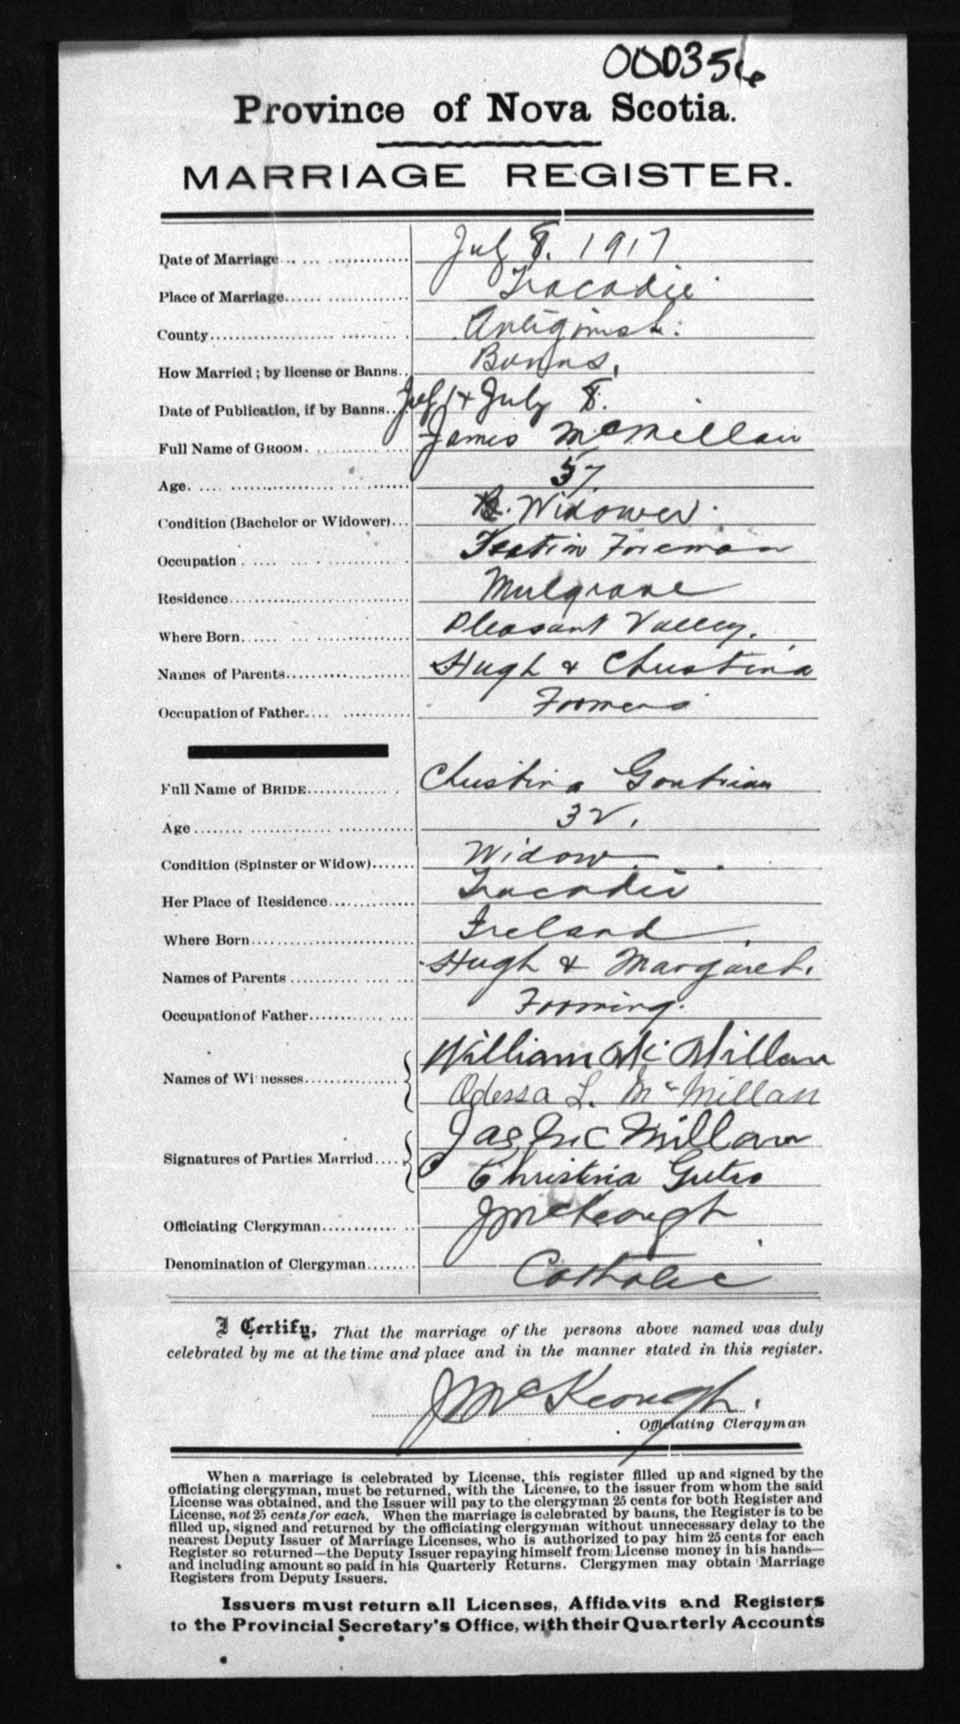 000356
Province of Nova Scotia.
MARRIAGE REGISTER.
Date of Marriage July 8. 1917
Place of Marriage Tracadie
County Antigonish.
How Married; by license or Banns Banns,
Date of Publication, if by Banns July 1 + July 8.
Full Name of GROOM. James McMillan
Age 57
Condition (Bachelor or Widower) Widower.
Occupation Foreman
Residence Mulgrave
Where Born Pleasant Valley.
Names of Parents Hugh & Christina
Occupation of Father Farmers
Full Name of BRIDE Christina
Age 32.
Condition (Spinster or Widow) Widow
Her Place of Residence Tracadie
Where Born Ireland
Names of Parents Hugh & Margaret.
Occupation of Father Farming.
Names of Witnesses William McMillan
Odessa L. McMillan
Signatures of Parties Married Jas McMillan
Christina
Officiating Clergyman J McKeough
Denomination of Clergyman Catholic
I Certify, That the marriage of the persons above named was duly
celebrated by me at the time and place and in the manner stated in this register.
J McKeough.
Officiating Clergyman
When a marriage is celebrated by License, this register filled up and signed by the
officiating clergyman, must be returned, with the License, to the issuer from whom the said
License was obtained, and the Issuer will pay to the clergyman 25 cents for both Register and
License, not 25 cents for each. When the marriage is celebrated by banns, the Register is to be
filled up, signed and returned by the officiating clergyman without unnecessary delay to the
nearest Deputy Issuer of Marriage Licenses, who is authorized to pay him 25 cents for each
Register so returned—the Deputy Issuer repaying himself from License money in his hands—
and including amount so paid in his Quarterly Returns. Clergymen may obtain Marriage
Registers from Deputy Issuers.
Issuers must return all Licenses, Affidavits and Registers
to the Provincial Secretary's Office, with their Quarterly Accounts